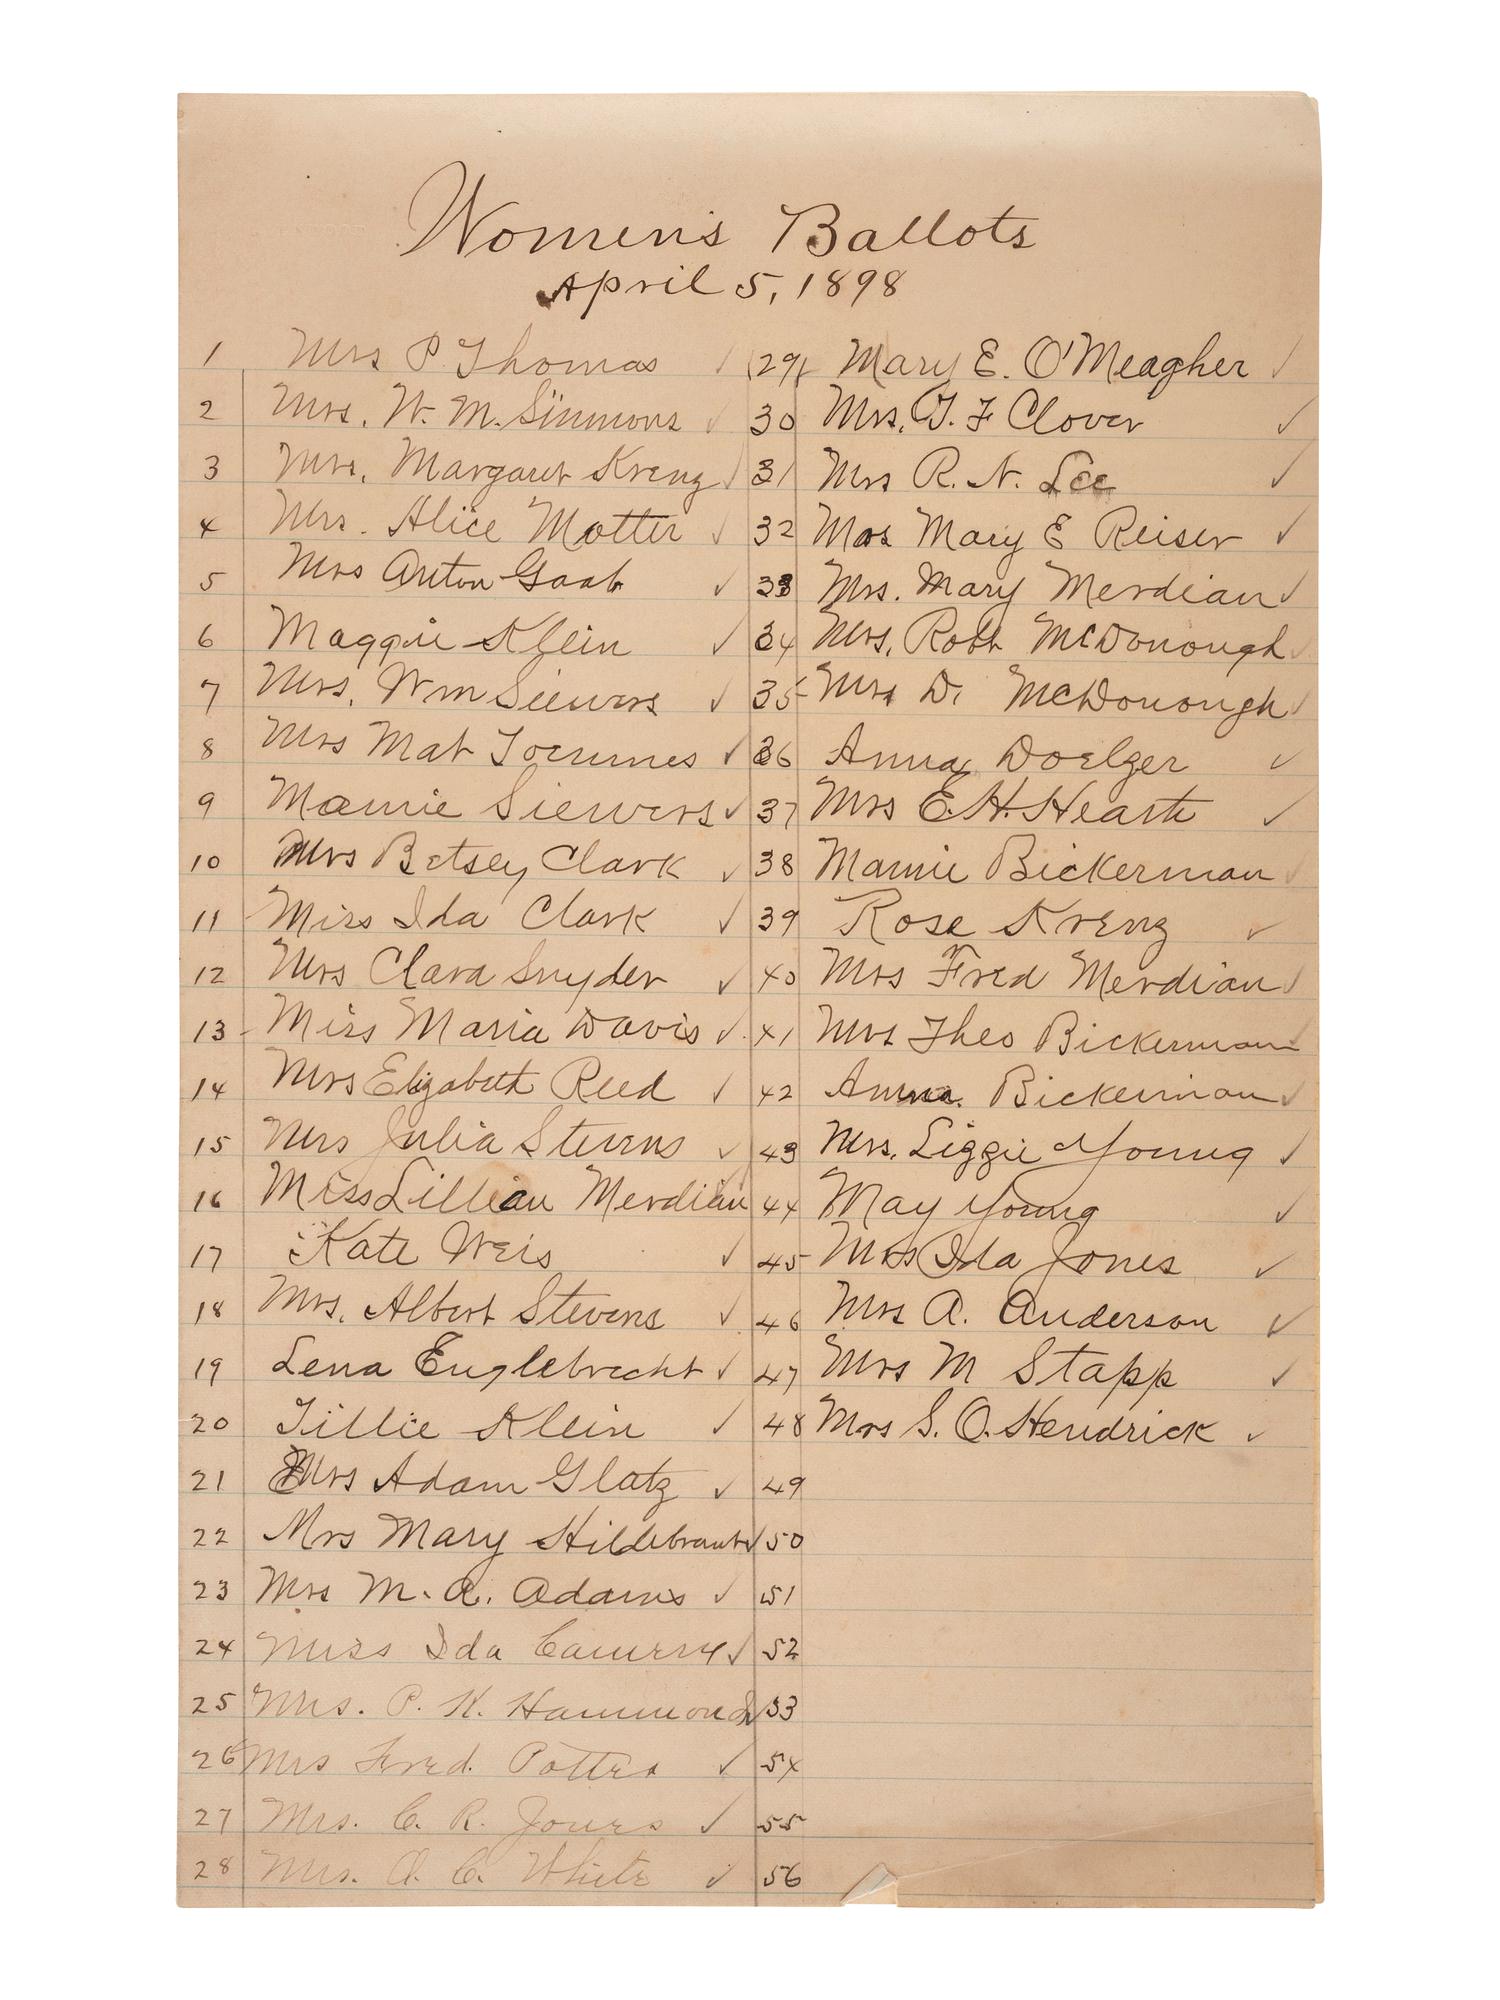 Women's Ballots
April 5, 1898
1 Mrs P Thomas ✓
2 Mrs. W. M. Simmons ✓
3 Mrs. Margaret Kreng ✓
4 Mrs. Alice Motter ✓
5 Mrs Anton Gaab ✓
6 Maggie Klein ✓
7 Mrs. Wm Siewers ✓
8 Mrs Mat Toennes ✓
9 Mamie Siewers ✓
10 Mrs Betsey Clark ✓
11 Miss Ida Clark ✓
12 Mrs Clara Snyder ✓
13 Miss Maria Davis ✓
14 Mrs Elizabeth Reed ✓
15 Mrs Julia Stevens ✓
16 Miss Lillian Merdian
17 Kate Weis ✓
18 Mrs. Albert Stevens ✓
19 Lena Englebrecht ✓
20 Tillie Klein ✓
21 Mrs Adam Glatz ✓
22 Mrs Mary Hildebrant ✓
23 Mrs M. A. Adams ✓
24 Miss Ida ✓
25 Mrs. P. K. Hammond ✓
26 Mrs Fred. ✓
27 Mrs. C. R. Jones ✓
28 Mrs. A. C. White ✓
29 Mary E. O'Meagher ✓
30 Mrs. T. F Clover ✓
31 Mrs R. N. Lee ✓
32 Mrs Mary E Reiser ✓
33 Mrs. Mary Merdian ✓
34 Mrs. Robt McDonough ✓
35 Mrs D. McDonough ✓
36 Anna Doelger ✓
37 Mrs E. H. Hearth ✓
38 Mamie Bickerman ✓
39 Rose Kreng ✓
40 Mrs Fred Merdian ✓
41 Mrs Theo Bickerman ✓
42 Anna Bickerman ✓
43 Mrs. Lizzie Young ✓
44 May Young ✓
45 Mrs Ida Jones ✓
46 Mrs A. Anderson ✓
47 Mrs M Stapp ✓
48 Mrs S. O. Hendrick ✓
49
50
51
52
53
54
55
56